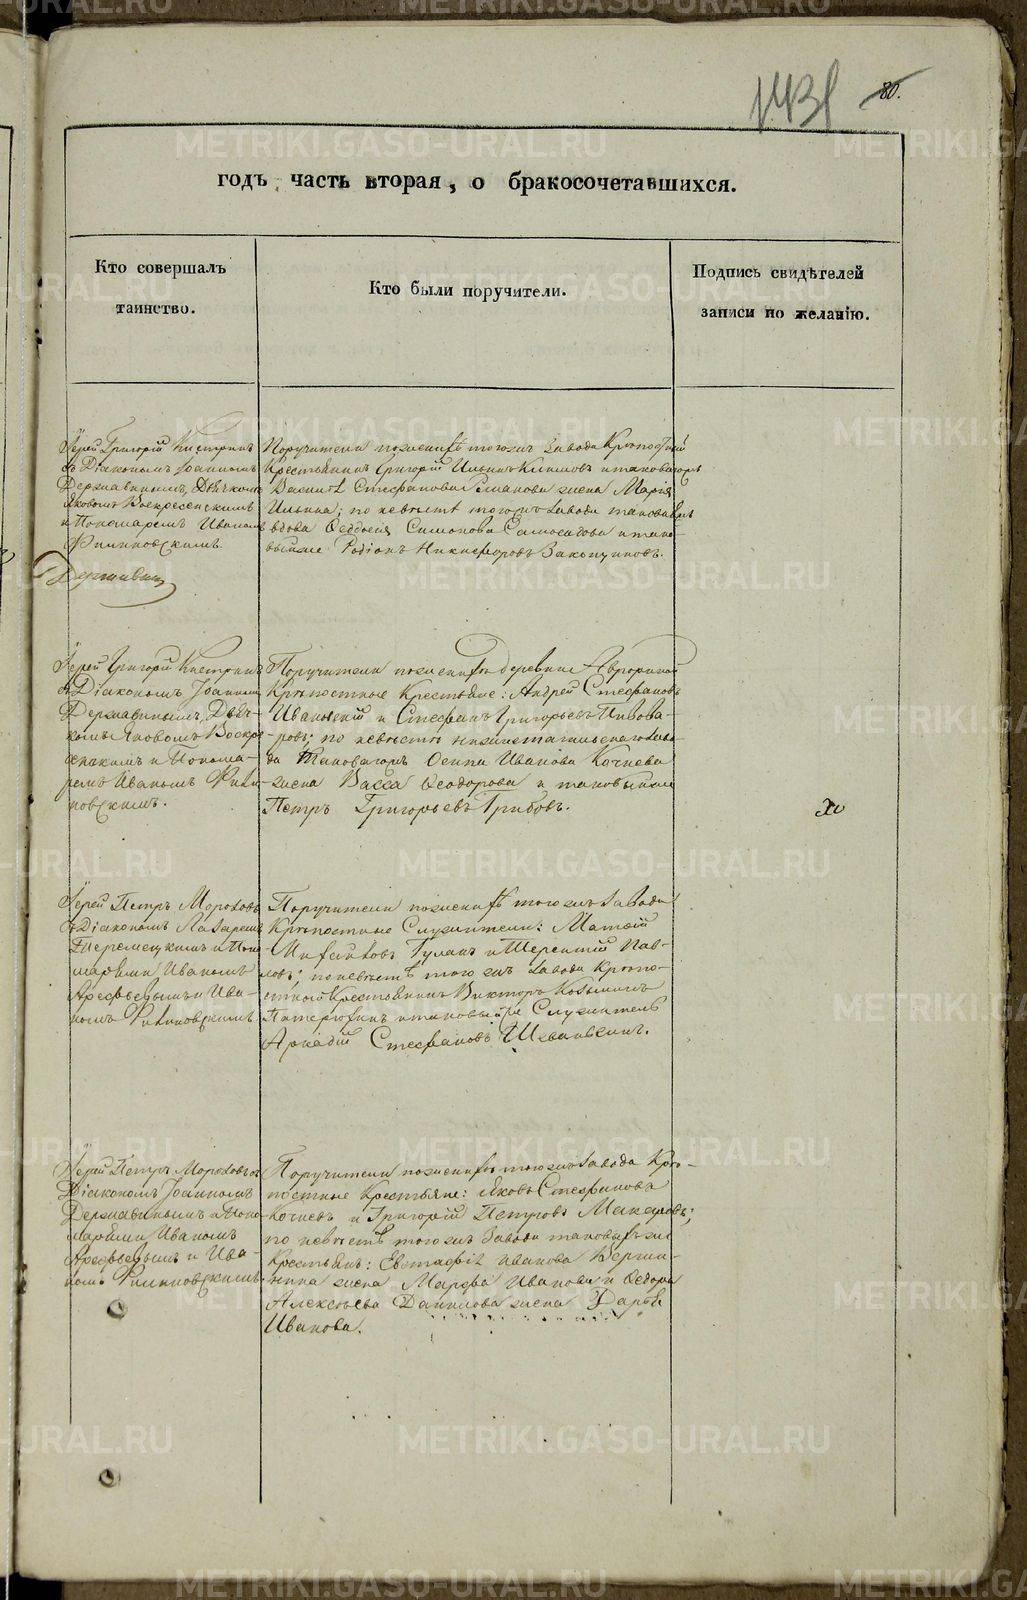 1431
80.
годъ часть вторая, о бракосочетавшихся.
Кто совершалъ
таинство.
Кто были поручители.
Подпись свидѣтелей
записи по желанію.
Іерей Григорій
съ Діакономъ Іоанномъ
Державинымъ, Дьячкомъ
Яковомъ Воскресенскимъ
и Пономаремъ Иваномъ
Филиновскимъ.
Державинъ
Поручители по женихѣ того жъ завода Крѣпостный
Крестьянинъ Григорій Ильинъ Климовъ и таковагожъ
Василія Стефанова жена Марія
Ильина; по невѣстѣ того жъ завода таковыежъ
вдова Феодосія Симонова и тако-
выйже Родіонъ Никифоровъ
Іерей Григорій
съ Діакономъ Іоанномъ
Державинымъ, Дьяч-
комъ Яковомъ Воскре-
сенскимъ и Понома-
ремъ Иваномъ Фили-
новскимъ.
Поручители по женихѣ деревни
Крѣпостные Крестьяне: Андрей Стефановъ
Ивановскій и Стефанъ Григорьевъ Пивова-
ровъ; по невѣстѣ нижнетагильскаго заво-
да таковагожъ Осипа Иванова Кочнева
жена Васса Феодорова и таковыйже
Петръ Григорьевъ Грибовъ.
Іерей Петръ Морозовъ
съ Діакономъ Лазаремъ
и Поно-
марями Иваномъ
Арефьевымъ и Ива-
номъ Филиновскимъ
Поручители по женихѣ того жъ завода
Крѣпостные Служители: Матвій
Гулинъ и Терентій Пав-
ловъ; по невѣстѣ того жъ завода крѣпо-
стной Крестьянинъ Викторъ Козьминъ
и таковыйже Служитель
Аркадій Стефановъ
Іерей Петръ Морозовъ съ
Діакономъ Іоанномъ
Державинымъ и Поно-
марями Иваномъ
Арефьевымъ и Ива-
номъ Филиновскимъ
Поручители по женихѣ того жъ завода Крѣ-
постные Крестьяне: Яковъ Стефановъ
Кочневъ и Григорій Петровъ Макаровъ;
по невѣстѣ того жъ завода таковыхъ же
Крестьянъ: Евстафія Иванова
жена Марфа Иванова и Федора
Алексѣева Данилова жена Дарья
Иванова.